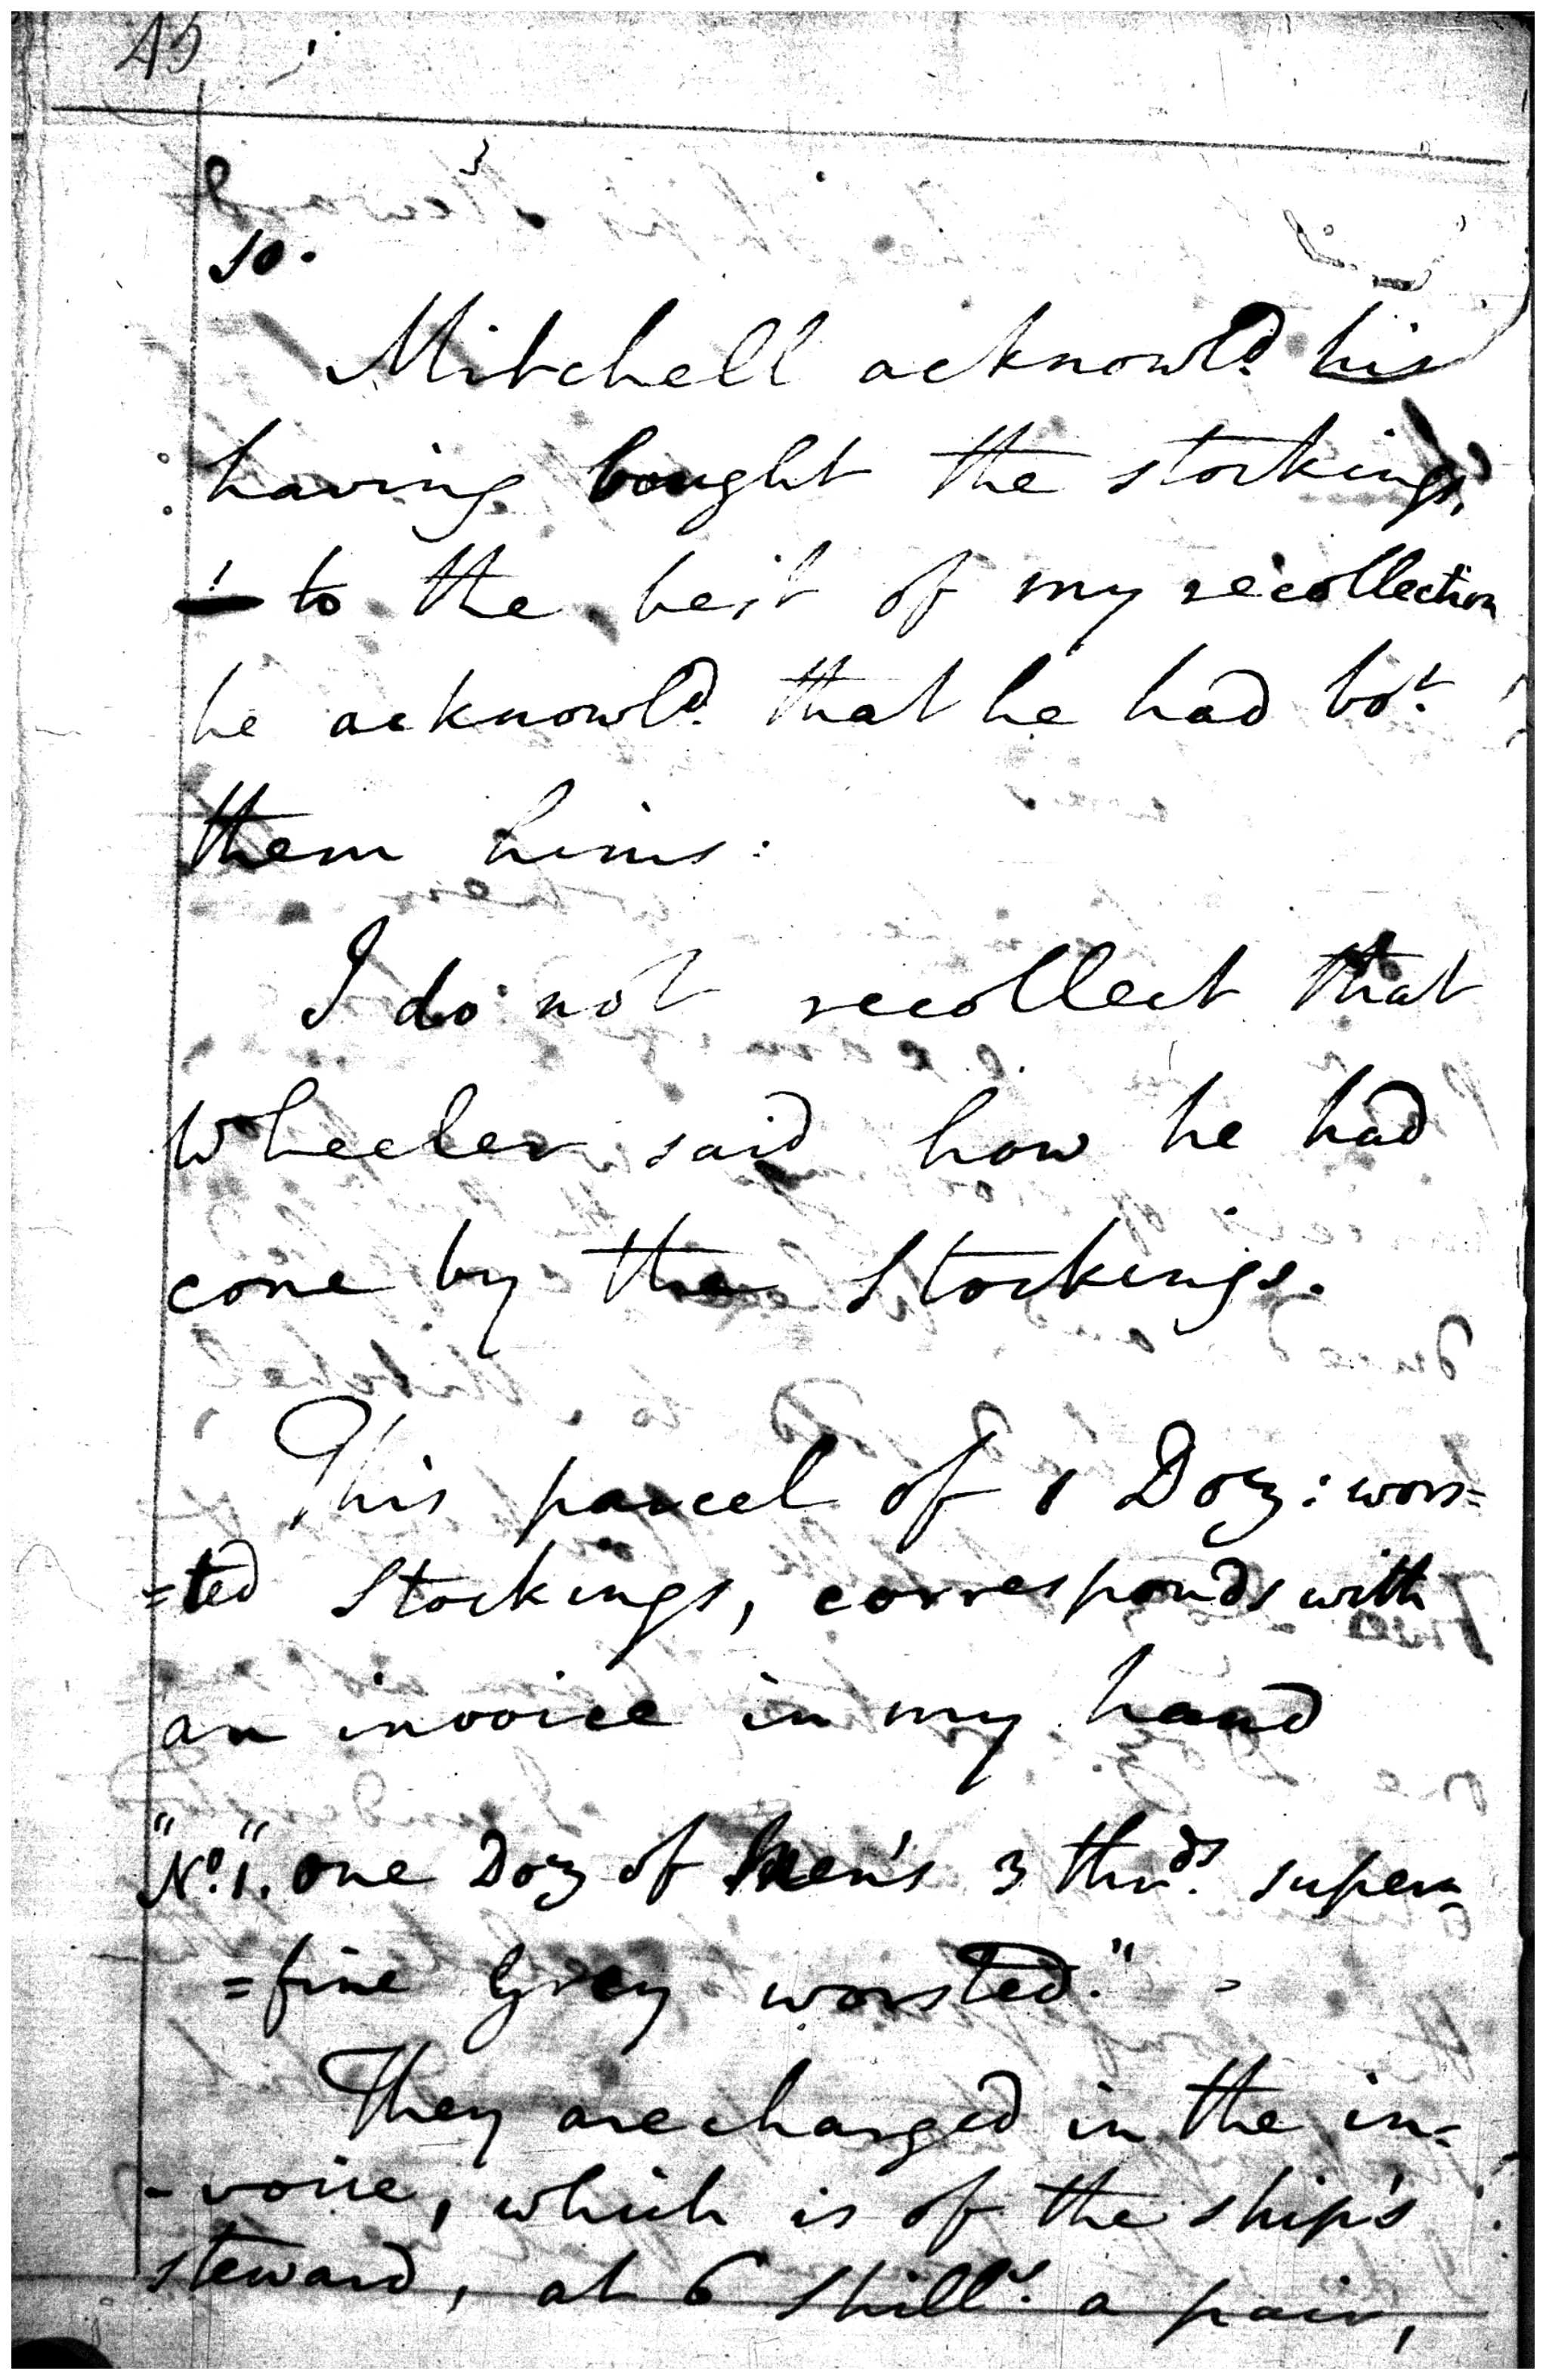 45
so.
Mitchell acknowld. his
having bought the stockings,
to the best of my recollection
he acknowld. that he had bot.
them hims:
I do not recollect that
Wheeler said how he had
come by the Stockings.
This parcel of 1 Doz: wors=
=ted Stockings, corresponds with
an invoice in my hand
"No. 1". one Doz of Men's 3 thrds. super=
=fine Grey worsted."
They are charged in the in=
-voice, which is of the ship's
steward, at 6 shills. a pair,